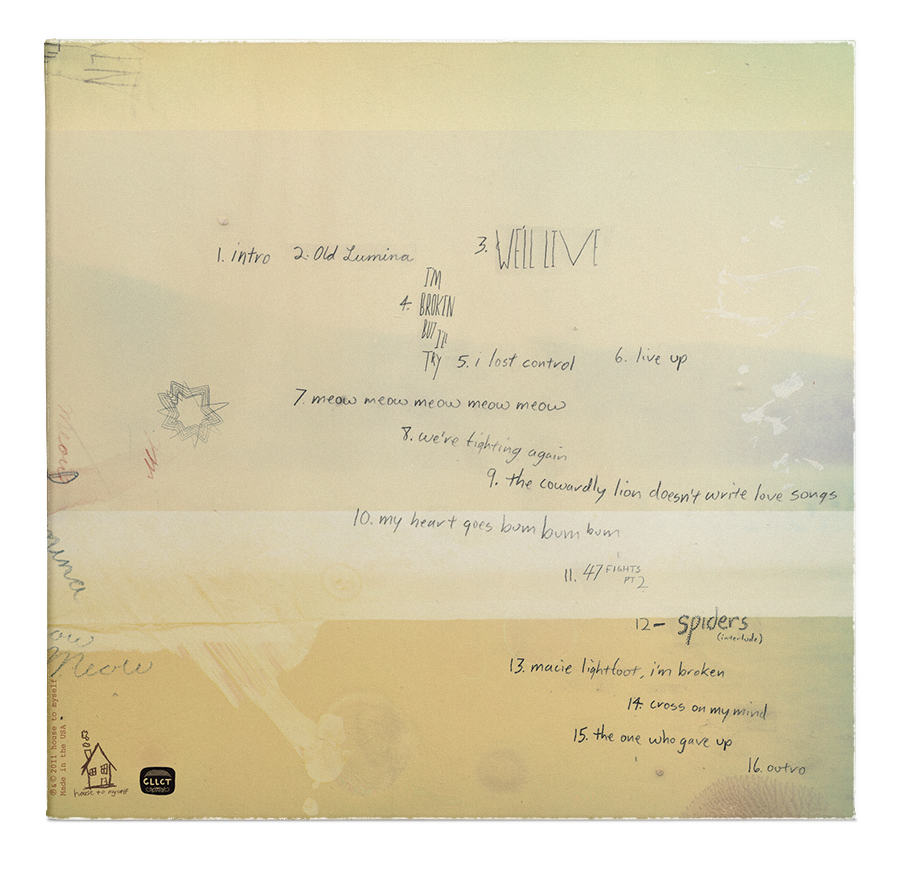 1. intro 2. Old Lumina 3. WE'LL LIVE
4. I'M
BROKEN
BUT I'll
TRY
5. i lost control 6. live up
7. meow meow meow meow meow
8. we're fighting again
9. the cowardly lion doesn't write love songs
10. my heart goes bum bum bum
11. 47 FIGHTS
PT 2
12- spiders
(interlude)
13. macie lightfoot, i'm broken
14. cross on my mind
15. the one who gave up
16. outro
mina
ow
Meow
℗&© 2011 house to myself
Made in the USA.
house to myself
CLLCT